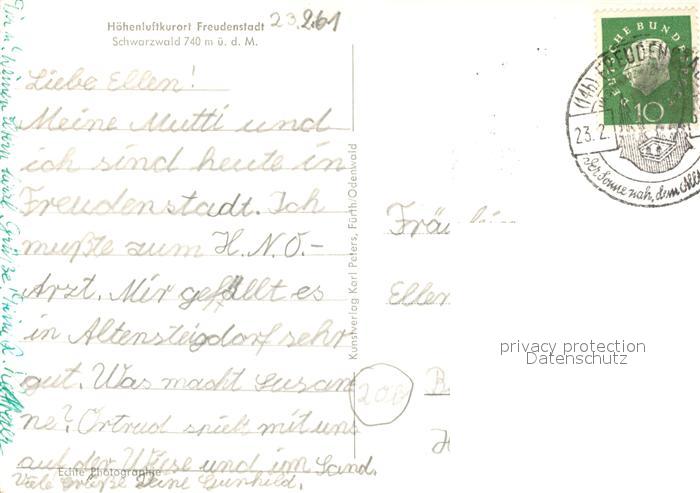 Höhenluftkurort Freudenstadt
Schwarzwald 740 m ü. d. M.
23.2.61
Liebe Ellen!
Meine Mutti und
ich sind heute in
Freudenstadt. Ich
mußte zum H.N.O.-
Arzt. Mir gefällt es
in Altensteigdorf sehr
gut. Was macht Susan
ne? Ortrud spielt mit uns
auf der Wiese und im Sand.
Viele Grüße Deine Gunhild.
Echte Photographie
Kunstverlag Karl Peters, Fürth/Odenwald
DEUTSCHE BUNDES
10
(14b) FREUDENSTA
23.2.
der Sonne nah, dem Alltag
Fräu
Ellen
208
privacy protection
Datenschutz